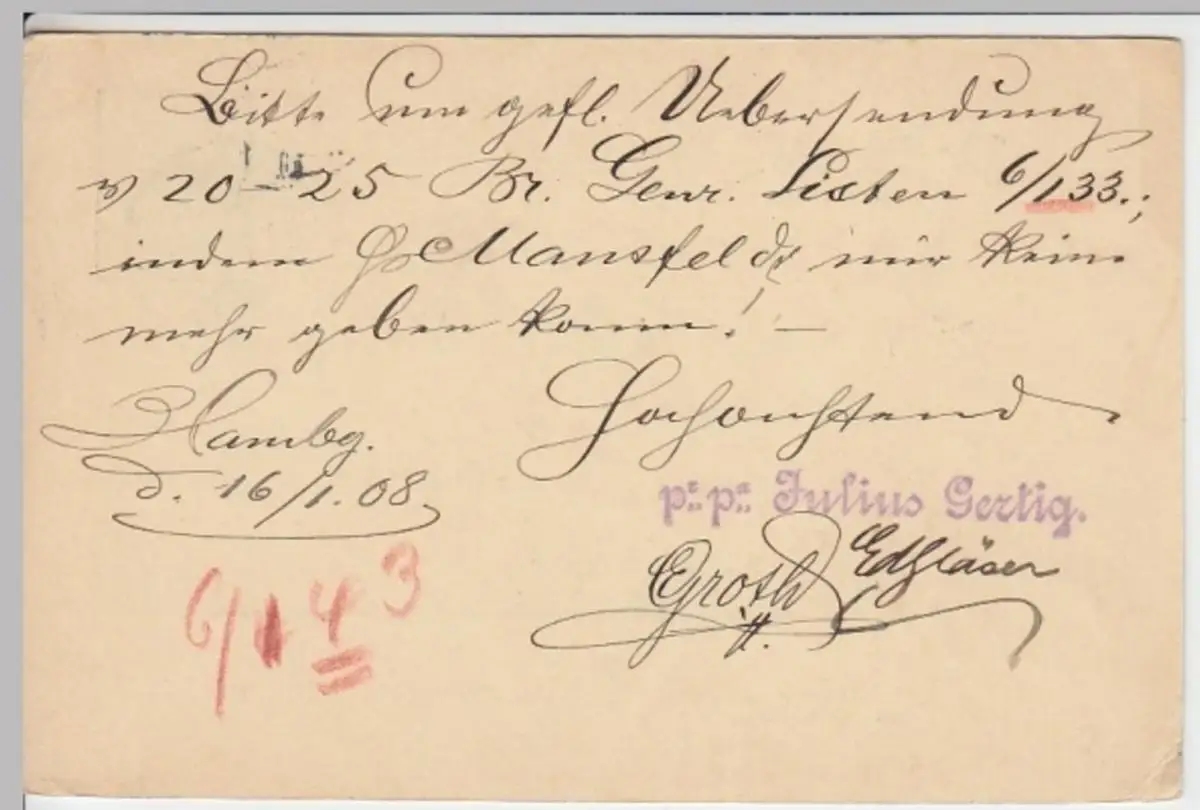 Bitte um gefl. Uebersendung
v 20 - 25 Br. Genr. Listen 6/133.;
indem H. Mansfeld mir keine
mehr geben kann! —
Hambg.
d. 16/1. 08.
Hochachtend
pr. pa. Julius Gertig.
Groth EdGläser
6/143